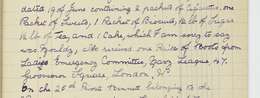 dated 19 of June containing 2 packets of Cigarettes, one
Packet of Sweets, 1 Packet of Biscuits, ½ lb of Sugar
¼ lb of Tea, and 1 Cake, which I am sorry to say
was Mouldy, Also received one Pair of Boots from
Ladies Emergency Committee, Navy League, 47
Grosvenor Square, London, W.
On the 25th Private belonging to the